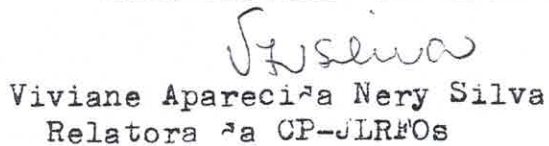 Viviane Aparecida Nery Silva
Relatora da CP-JLRFOs